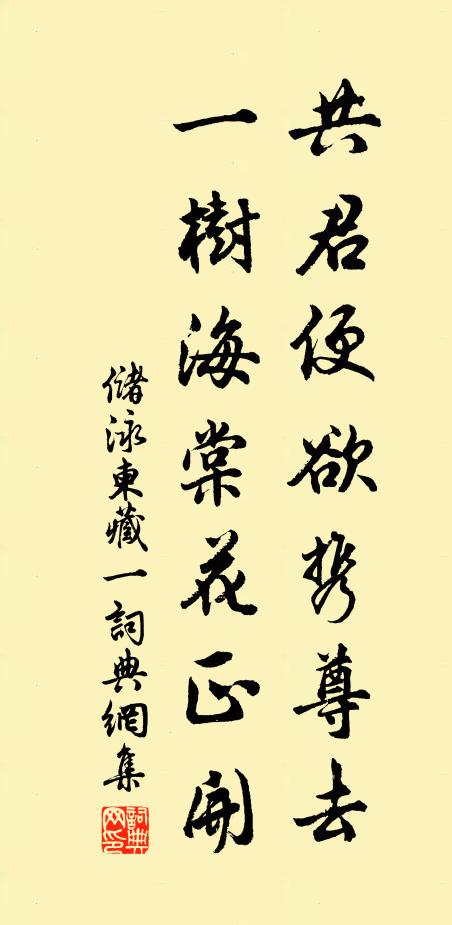 共君便欲携尊去
一樹海棠花正開
儲泳東藏一詞典網集
詞典網印